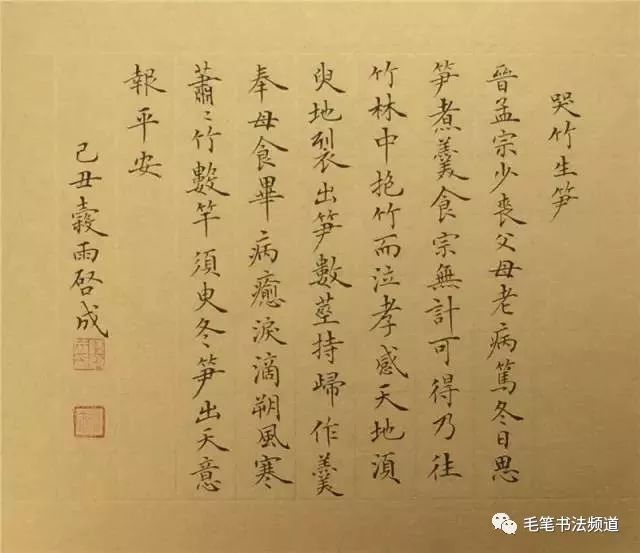 哭竹生笋
晉孟宗少喪父母老病篤冬日思
笋煮羹食宗無計可得乃往
竹林中抱竹而泣孝感天地須
臾地裂出笋數莖持歸作羹
奉母食畢病癒淚滴朔風寒
蕭〻竹數竿須臾冬笋出天意
報平安
己丑穀雨啓成
毛笔书法频道